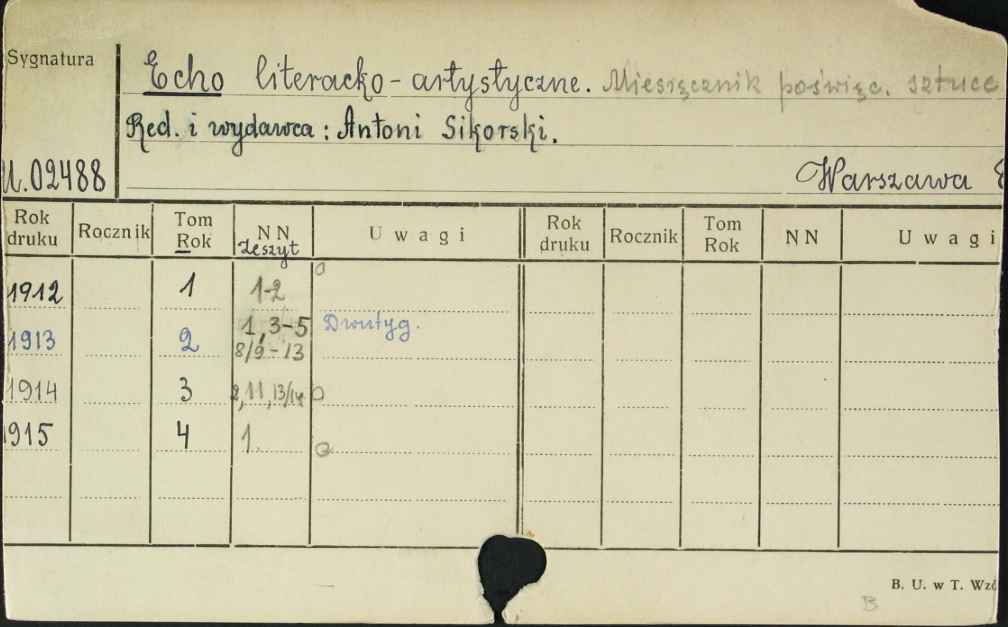 Sygnatura
Echo literacko-artystyczne. Miesięcznik poświęc. sztuce
Red. i wydawca: Antoni Sikorski.
U.02488
Warszawa
Rok druku Rocznik Tom Rok NN Zeszyt Uwagi Rok druku Rocznik Tom Rok NN Uwagi
1912 1 1-2
1913 2 1,3-5 Dwutyg.
8/9-13
1914 3 2,11,13/14
1915 4 1.
B. U. w T.
B